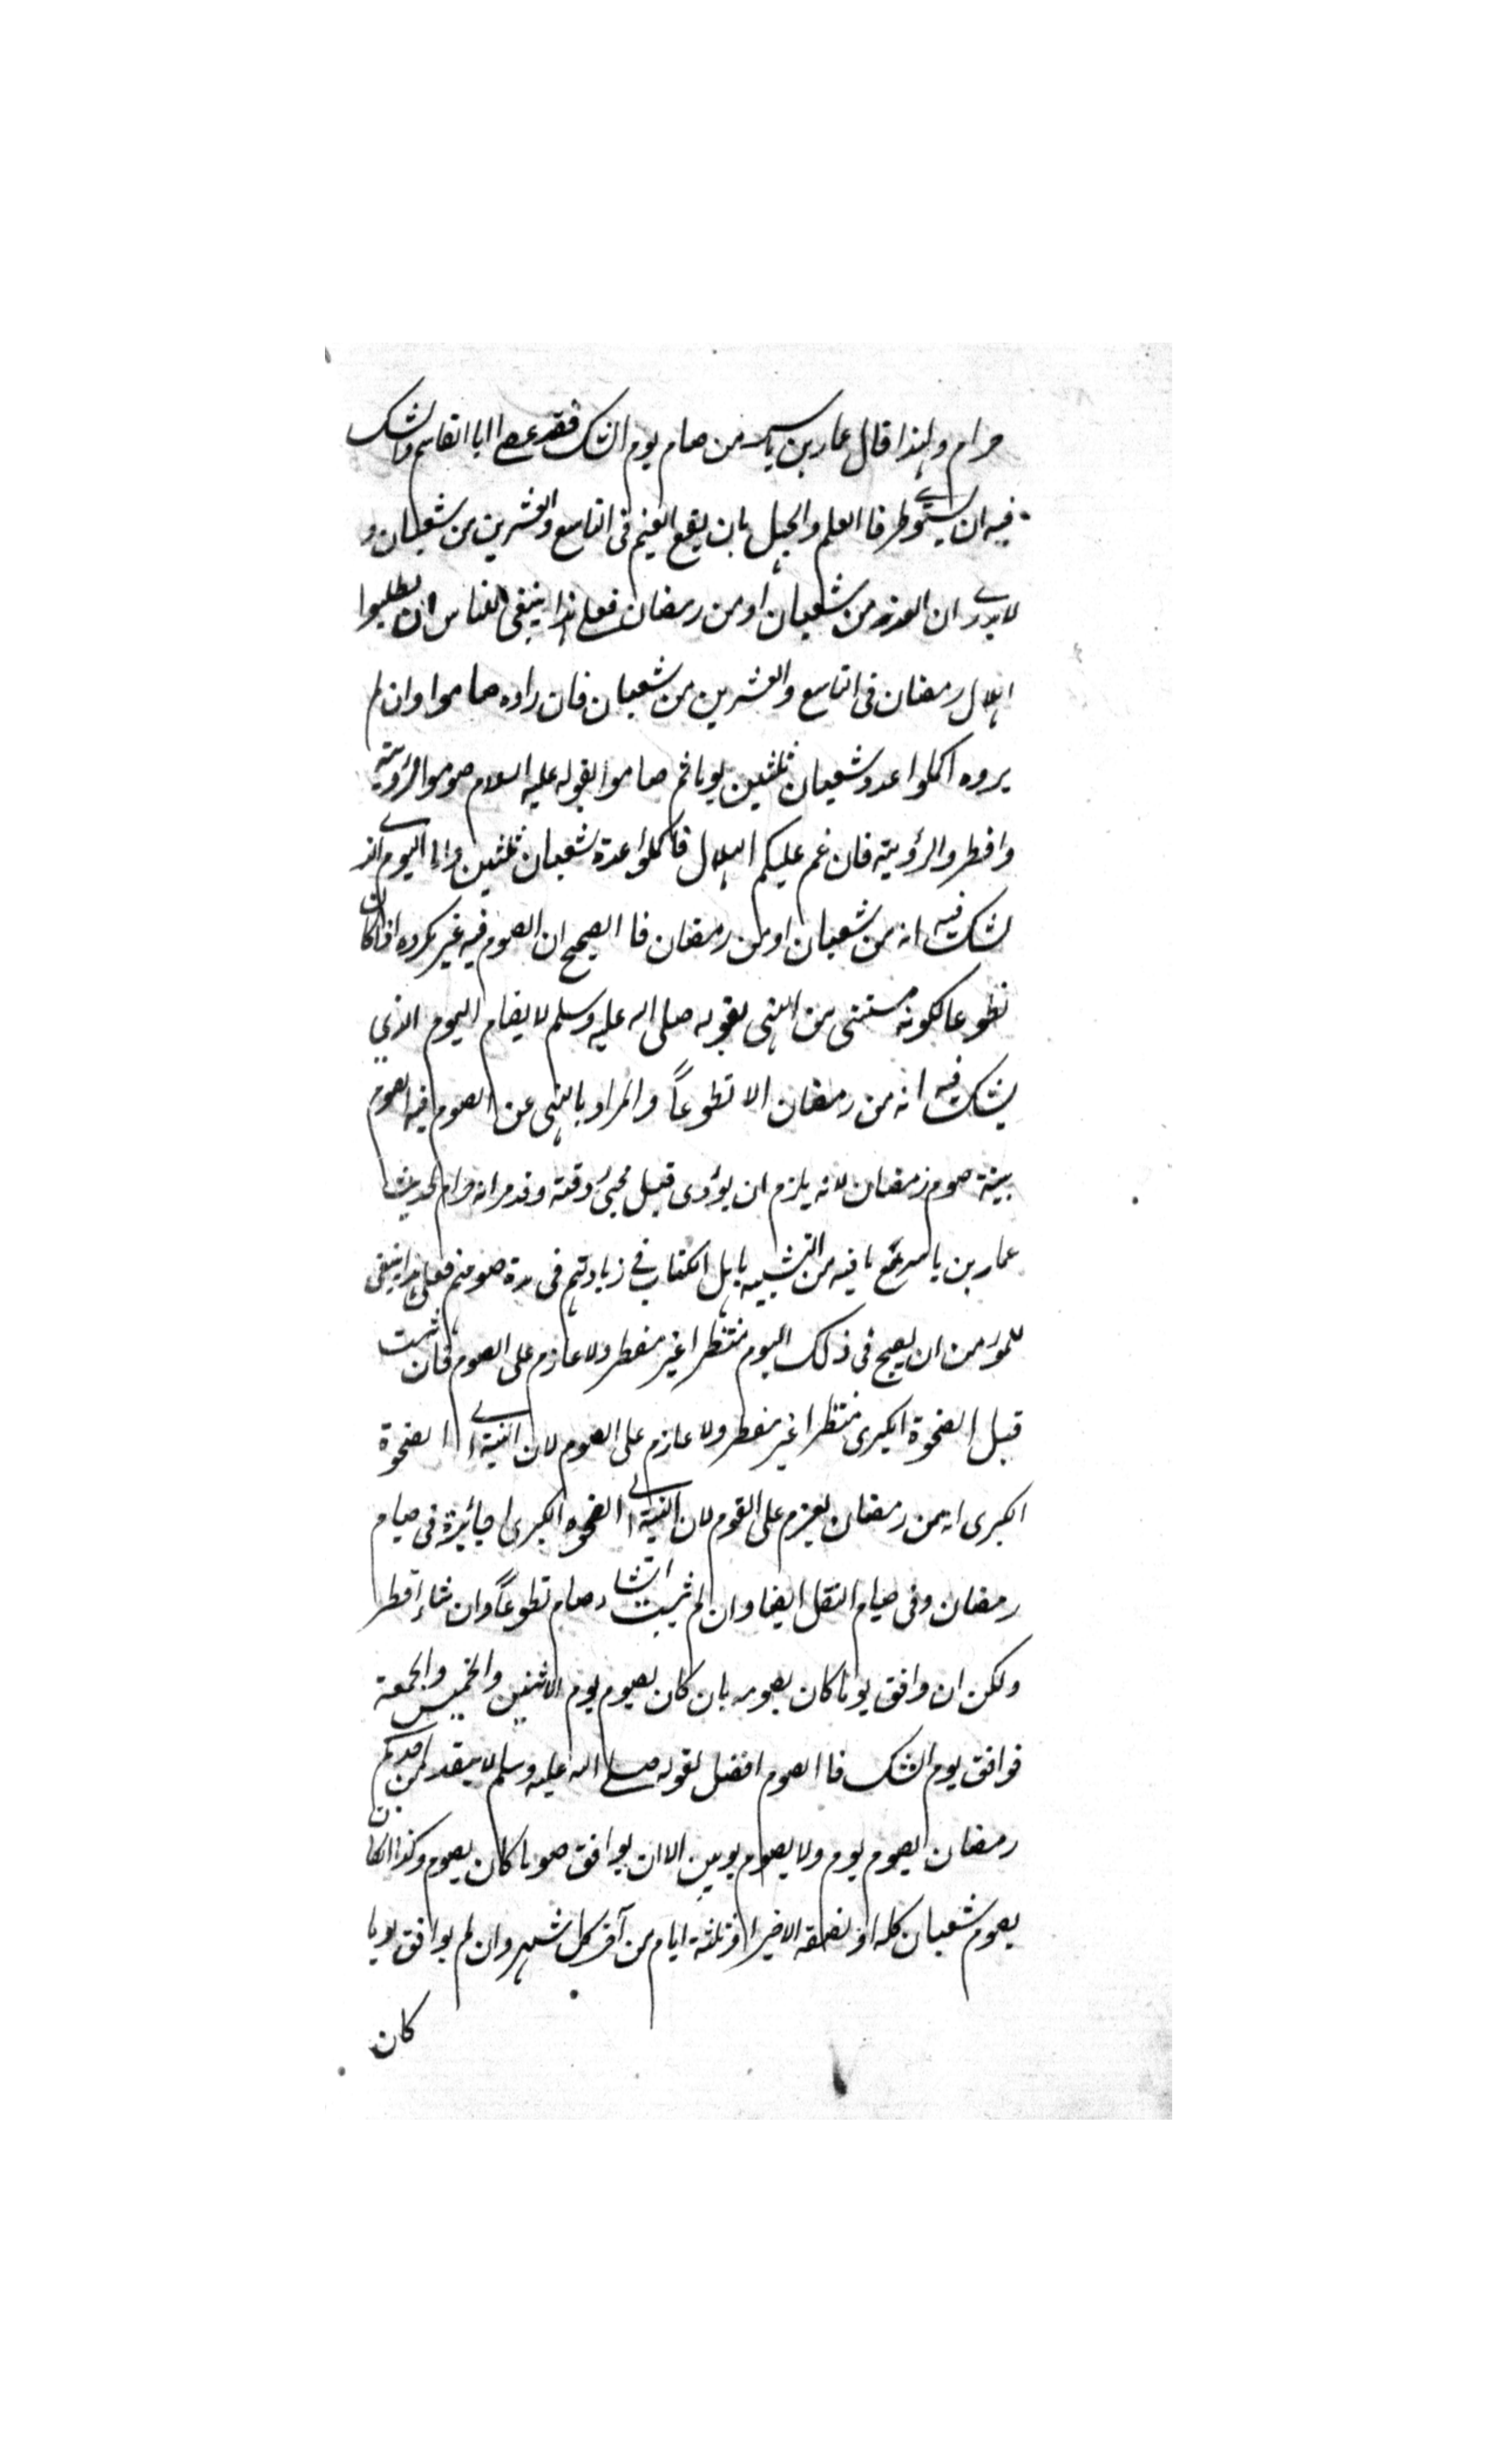 حرام ولهذا قال عمار بن ياسر من صام يوم الشك فقد عصى ابا القاسم والشك
فيه ان يستوى طرفا العلم والجهل بان يقع الغيم فى التاسع والعشرين من شعبان و
لا يدرى ان الغد من شعبان او من رمضان فعلى هذا ينبغى للناس ان يطلبوا
هلال رمضان فى التاسع والعشرين من شعبان فان راوه صاموا وان لم
يروه اكملوا عدد شعبان ثلثين يوما ثم صاموا لقوله عليه السلام صوموا لرؤيته
وافطروا لرؤيته فان غم عليكم الهلال فاكملوا عدة شعبان ثلثين واما اليوم الذى
يشك فيه انه من شعبان او من رمضان فا الصحيح ان الصوم فيه غير مكروه اذا كان
تطوعا لكونه مستثنى من النهى بقوله صلى الله عليه وسلم لا يصام اليوم الذي
يشك فيه انه من رمضان الا تطوعاً والمراد بالنهى عن الصوم فيه الصوم
بنية صوم رمضان لانه يلزم ان يؤدى قبل مجئ وقته وقد مر انه حرام لحديث
عمار بن ياسر مع ما فيه من التشبيه باهل الكتاب في زيادتهم فى مدة صومهم فعلى هذا ينبغى
للمؤمن ان يصبح فى ذلك اليوم منتظرا غير مفطر ولا عازم على الصوم فان ثبت
قبل الضحوة الكبرى منتظرا غير مفطر ولا عازم على الصوم لان النية الى الضحوة
الكبرى انه من رمضان يعزم على القوم لان النية الى الضحوه الكبرى جائزة فى صيام
رمضان وفى صيام النفل ايضا وان لم يثبت ان شاء صام تطوعاً وان شاء افطر
ولكن ان وافق يوما كان يصومه بان كان يصوم يوم الاثنين والخميس والجمعة
فوافق يوم الشك فا الصوم افضل لقوله صلى الله عليه وسلم لا يتقدمن احدكم
رمضان بصوم يوم ولا يصوم يومين الا ان يوافق صوما كان يصوم وكذا ان كان
يصوم شعبان كله او نصفه الاخير او ثلثة ايام من آخر كل شهر وان لم يوافق يوما
كان